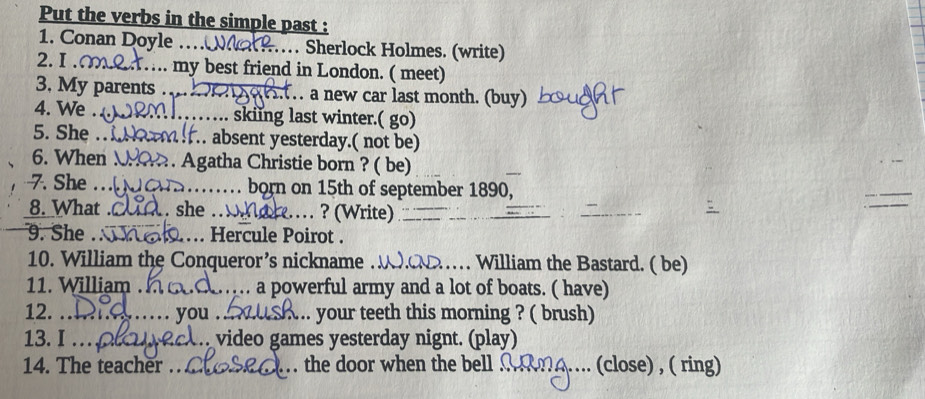 Put the verbs in the simple past :
1. Conan Doyle ....wrote....... Sherlock Holmes. (write)
2. I .met.... my best friend in London. ( meet)
3. My parents .... bought... a new car last month. (buy) bought
4. We . went........ skiing last winter.( go)
5. She ..wasn't.. absent yesterday.( not be)
6. When was. Agatha Christie born ? ( be)
7. She ...was........ born on 15th of september 1890,
8. What .did. she ..wrote.... ? (Write)
9. She ..wrote.... Hercule Poirot .
10. William the Conqueror's nickname .was.... William the Bastard. ( be)
11. William .had..... a powerful army and a lot of boats. ( have)
12. ..Did...... you ..brush... your teeth this morning ? ( brush)
13. I ...played... video games yesterday nignt. (play)
14. The teacher ..closed... the door when the bell .rang.... (close) , ( ring)